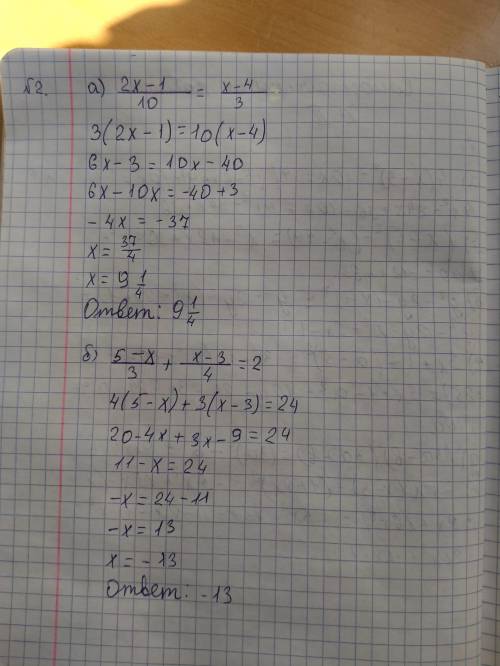 №2. а) (2x-1)/10 = (x-4)/3
3(2x-1)=10(x-4)
6x-3=10x-40
6x-10x=-40+3
-4x=-37
x=37/4
x=9 1/4
Ответ: 9 1/4
б) (5-x)/3 + (x-3)/4 = 2
4(5-x)+3(x-3)=24
20-4x+3x-9=24
11-x=24
-x=24-11
-x=13
x=-13
Ответ: -13